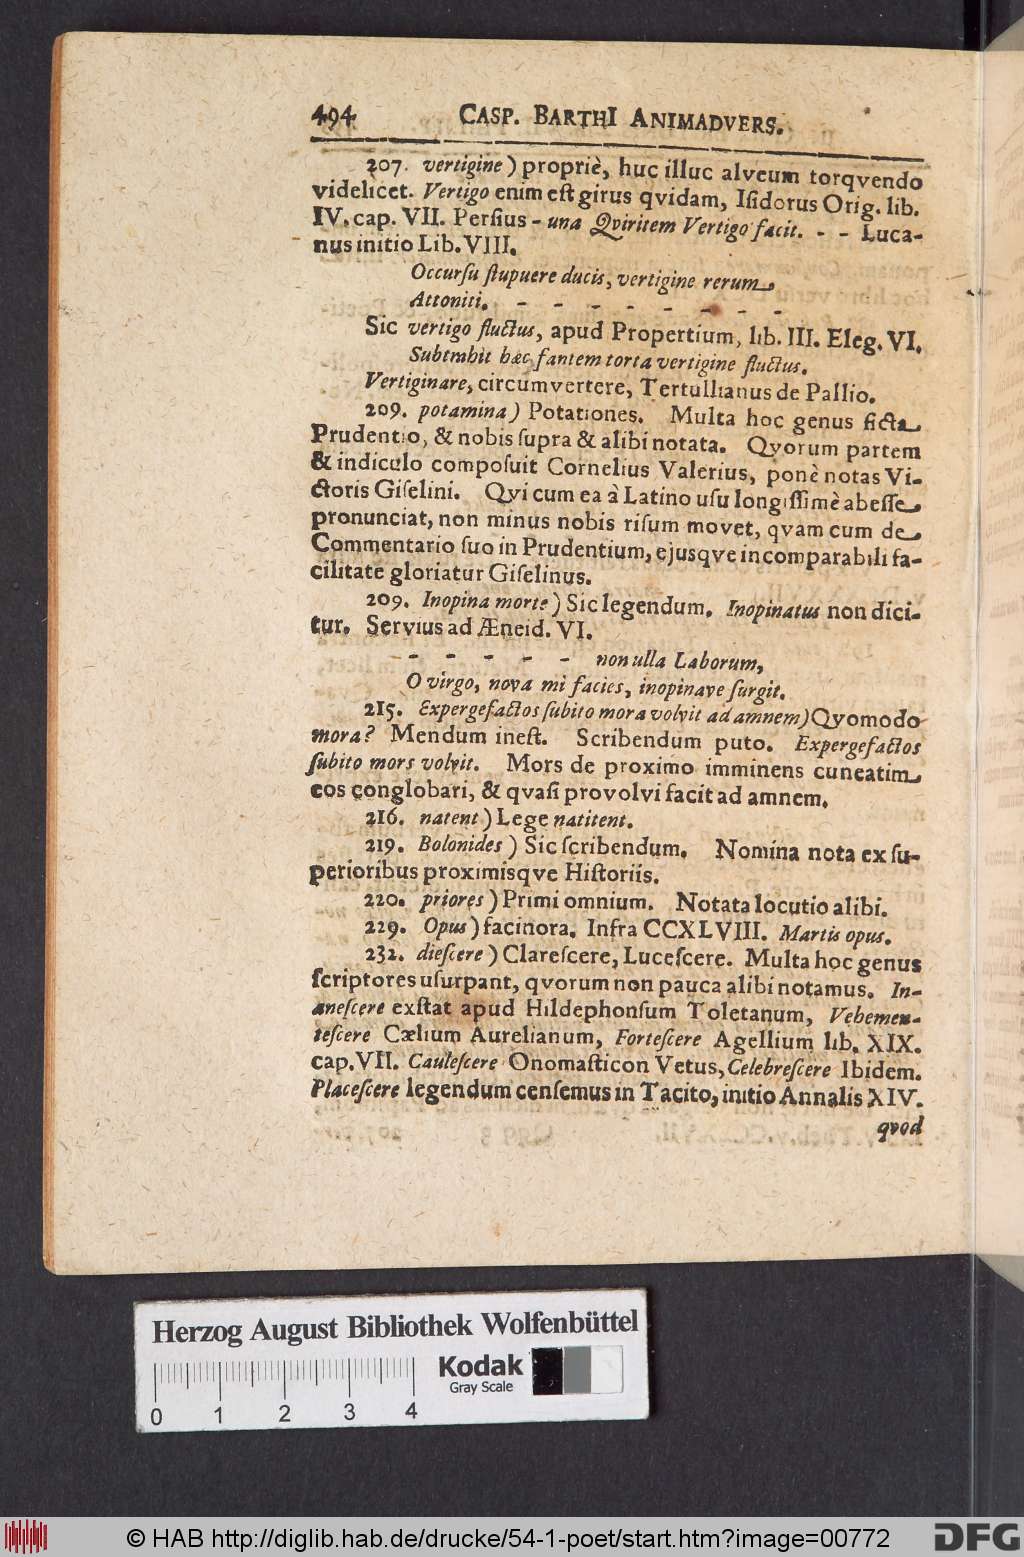 494 CASP. BARTHI ANIMADVERS.
207. vertigine) propriè, huc illuc alveum torqvendo
videlicet. Vertigo enim eſt girus qvidam, Iſidorus Orig. lib.
IV. cap. VII. Perſius - una Qviritem Vertigo facit. - - Luca-
nus initio Lib. VIII.
Occurſu ſtupuere ducis, vertigine rerum
Attoniti. - - - - - - - -
Sic vertigo fluctus, apud Propertium, lib. III. Eleg. VI.
Subtrahit hæc fantem torta vertigine fluctus.
Vertiginare, circumvertere, Tertullianus de Pallio.
209. potamina) Potationes. Multa hoc genus ficta
Prudentio, & nobis ſupra & alibi notata. Qvorum partem
& indiculo compoſuit Cornelius Valerius, ponè notas Vi-
ctoris Giſelini. Qvi cum ea à Latino uſu longiſſimè abeſſe
pronunciat, non minus nobis riſum movet, qvam cum de
Commentario ſuo in Prudentium, ejusqve incomparabili fa-
cilitate gloriatur Giſelinus.
209. Inopina morte) Sic legendum. Inopinatus non dici-
tur. Servius ad Æneid. VI.
- - - - - non ulla Laborum,
O virgo, nova mi facies, inopinave ſurgit.
215. Expergefactos ſubito mora volvit ad amnem) Qvomodo
mora? Mendum ineſt. Scribendum puto. Expergefactos
ſubito mors volvit. Mors de proximo imminens cuneatim
eos conglobari, & qvaſi provolvi facit ad amnem.
216. natent) Lege natitent.
219. Bolonides) Sic ſcribendum. Nomina nota ex ſu-
perioribus proximisqve Hiſtoriis.
220. priores) Primi omnium. Notata locutio alibi.
229. Opus) facinora. Infra CCXLVIII. Martis opus.
232. dieſcere) Clareſcere, Luceſcere. Multa hoc genus
ſcriptores uſurpant, qvorum non pauca alibi notamus. In-
aneſcere exſtat apud Hildephonſum Toletanum, Vehemen-
teſcere Cælium Aurelianum, Forteſcere Agellium lib. XIX.
cap. VII. Cauleſcere Onomaſticon Vetus, Celebreſcere Ibidem.
Placeſcere legendum cenſemus in Tacito, initio Annalis XIV.
qvod
Herzog August Bibliothek Wolfenbüttel
Kodak
Gray Scale
0 1 2 3 4
© HAB http://diglib.hab.de/drucke/54-1-poet/start.htm?image=00772
DFG